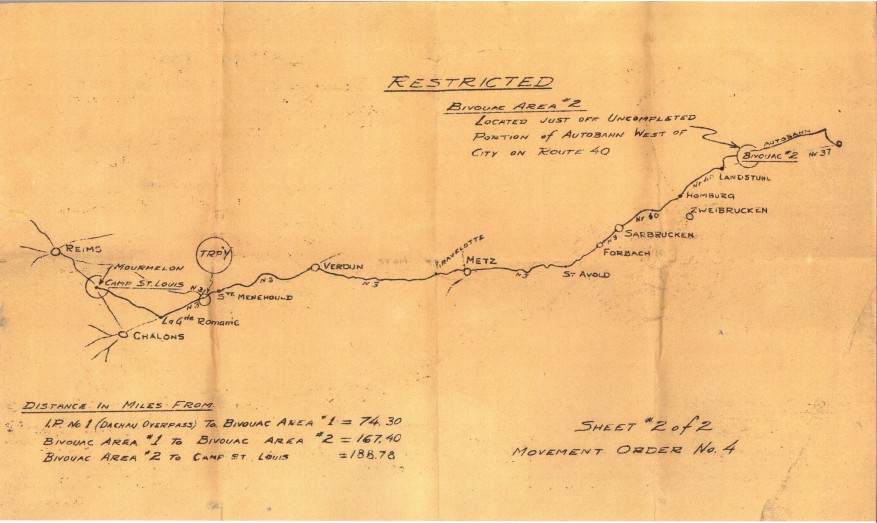 RESTRICTED
BIVOUAC AREA #2
LOCATED JUST OFF UNCOMPLETED
PORTION of AUTOBAHN WEST OF
CITY ON ROUTE 40
AUTOBAHN
BIVOUAC #2
Nr 37
LANDSTUHL
Nr 40
HOMBURG
ZWEIBRUCKEN
Nr 40
SARBRUCKEN
N3
FORBACH
ST AVOLD
N3
METZ
GRAVELOTTE
N3
VERDUN
N3
STE MENEHOULD
TROY
N31
N3
La Gde Romanie
REIMS
MOURMELON
CAMP ST. LOUIS
CHALONS
DISTANCE IN MILES FROM
I.P. No 1 (DACHAU OVERPASS) TO BIVOUAC AREA #1 = 74.30
BIVOUAC AREA #1 TO BIVOUAC AREA #2 = 167.40
BIVOUAC AREA #2 TO CAMP ST. LOUIS = 188.78
SHEET #2 of 2
MOVEMENT ORDER No. 4